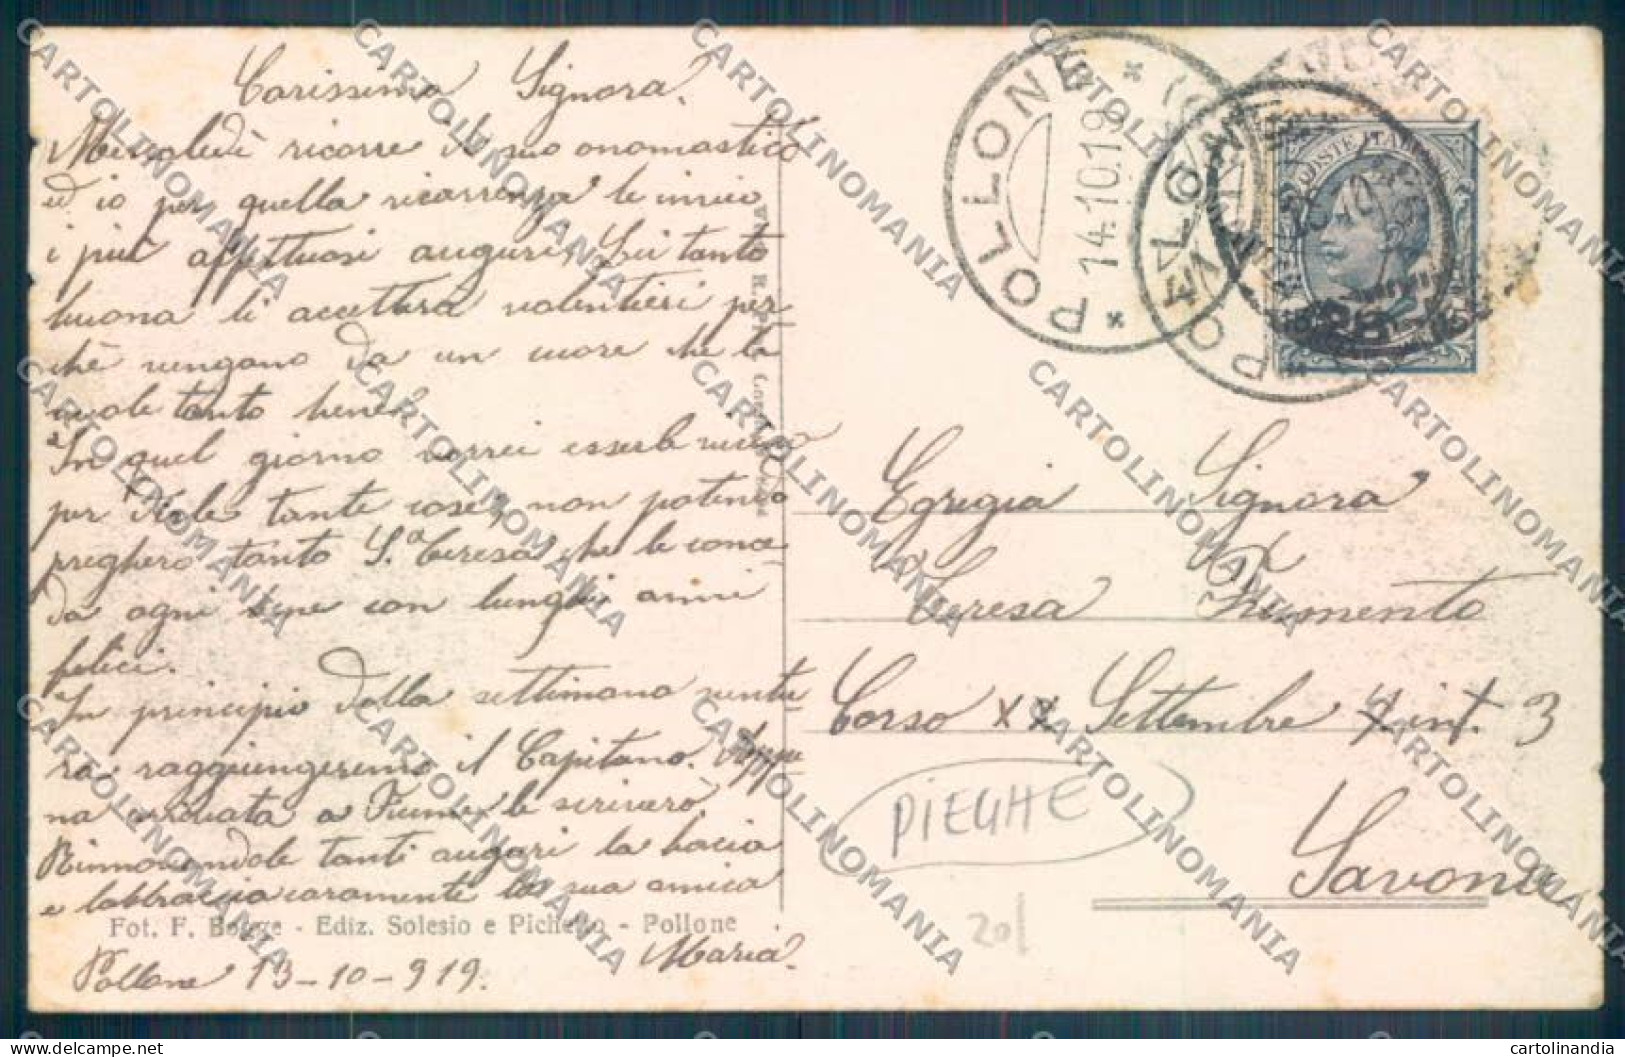 Carissima Signora.
Mercoledì ricorre il suo onomastico
ed io per quella ricorrenza le invio
i più affettuosi auguri, Lei tanto
buona li accetterà volentieri per
chè vengono da un cuore che la
vuole tanto bene.
In quel giorno vorrei esserle vicino
per dirle tante cose, non potendo
pregherò tanto S.a Teresa che le conce
da ogni bene con lunghi anni
felici.
In principio della settimana ventu
ra raggiungeremo il Capitano.
na arrivata a Fiume le scriverò.
Rinnovandole tanti auguri la bacia
e l'abbraccia caramente la sua amica
Fot. F. Bogge - Ediz. Solesio e Pichetto - Pollone
Maria.
Pollone 13-10-919.
POLLONE
14.10.19
POLLONE
POSTE ITALIANE
Egregia Signora
Teresa Frumento
Corso XX Settembre int. 3
Savona
PIEGHE
20/
CARTOLINOMANIA
www.delcampe.net
cartolinandia